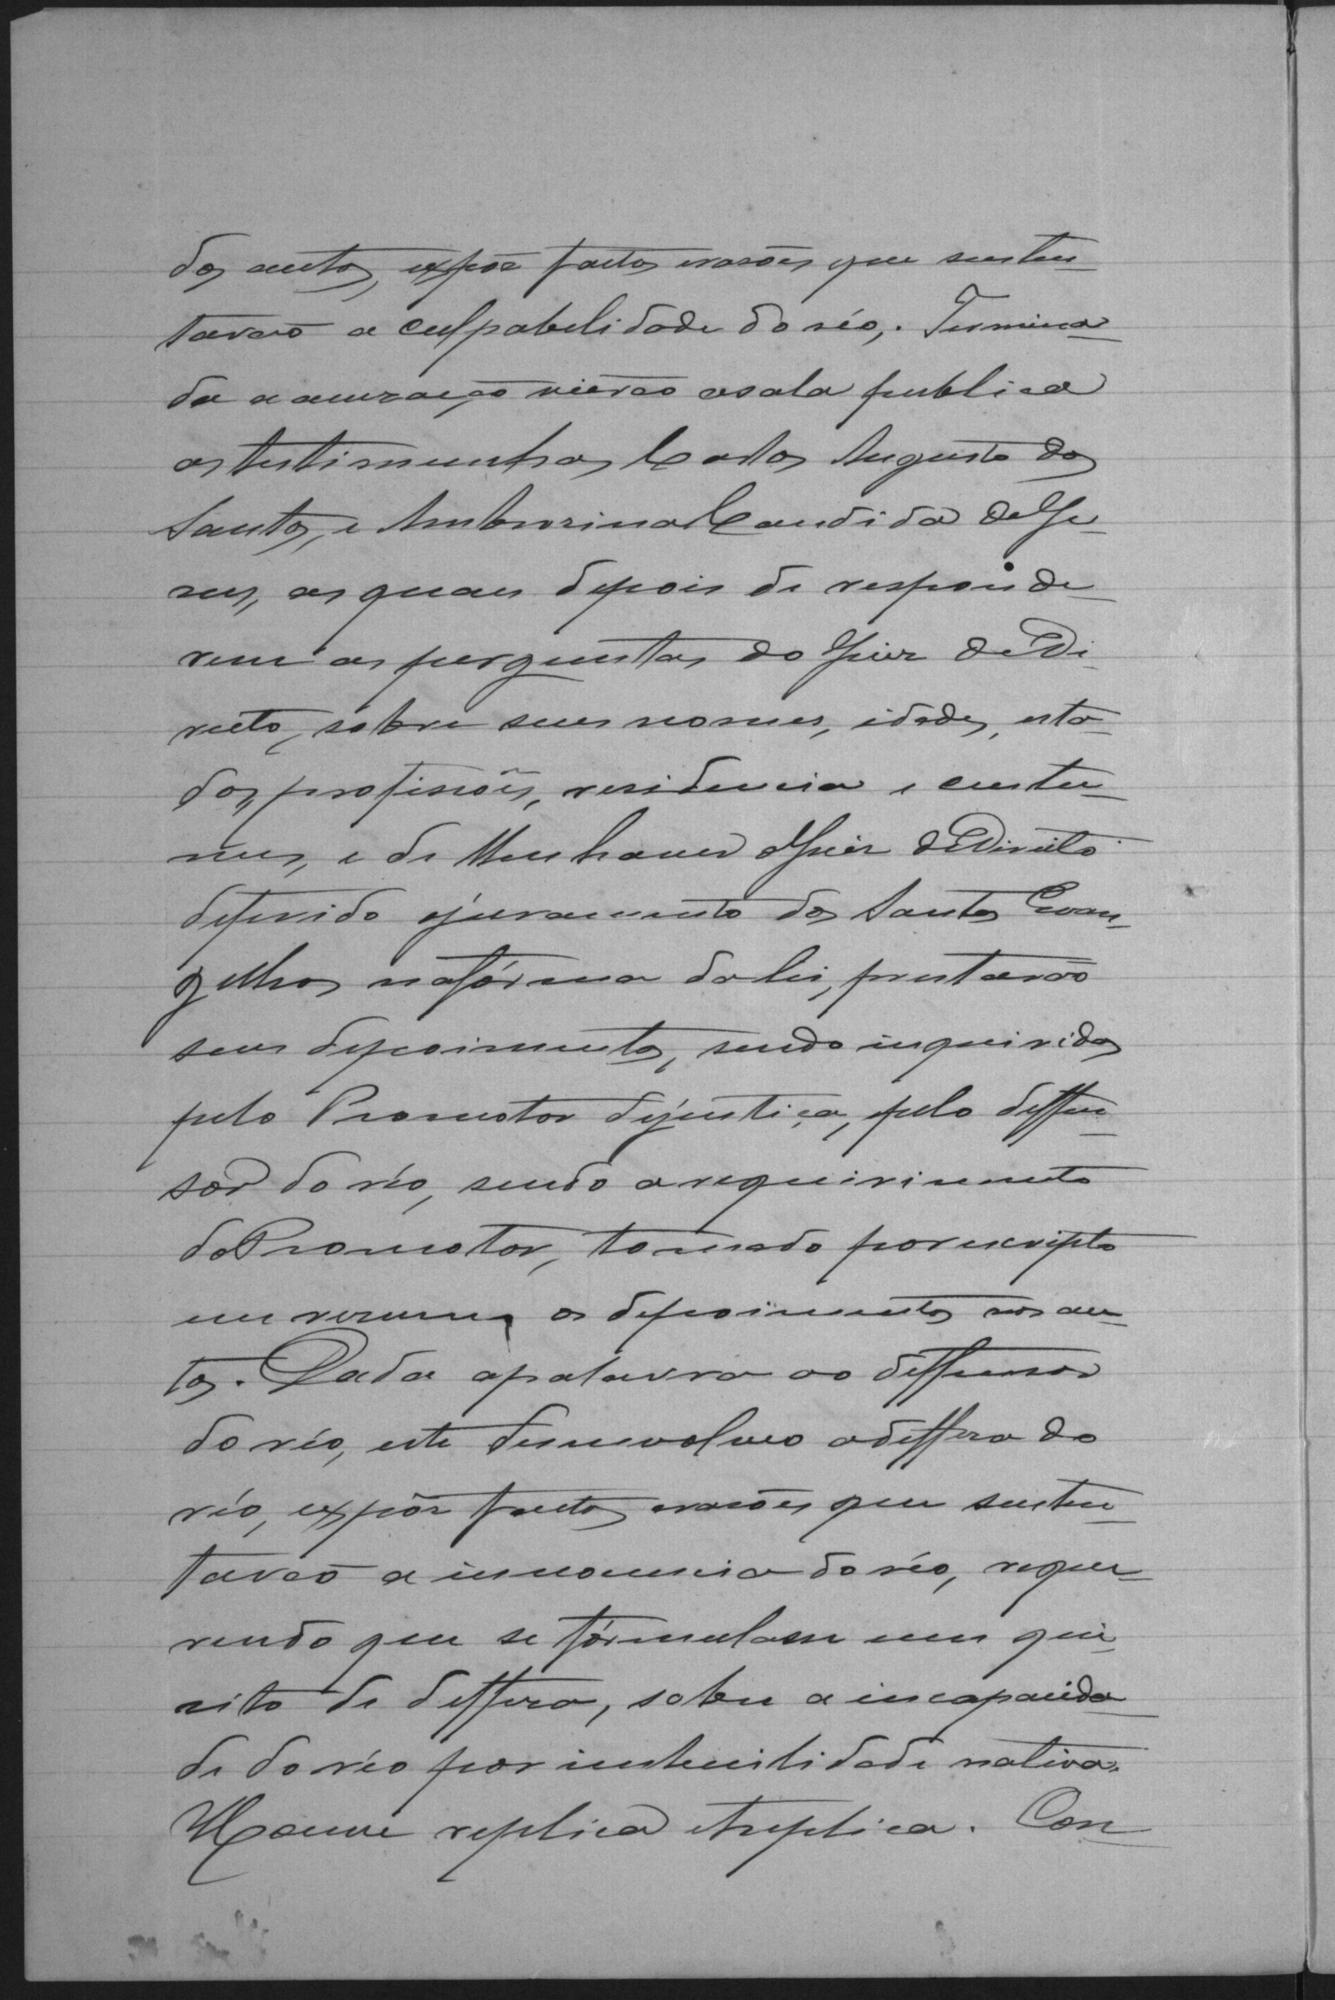 dos autos, expôz factos erasões que susten-
tavão a culpabelidade do réo,. Termina-
da a acuzação viérão asala publica
as testimunhas Carlos Augusto dos
Santos, e Ambrozina Candida de Je-
sus, as quaes depois de responde-
rem as perguntas do Juiz de Di-
reito, sobre seus nomes, idades, esta-
dos, profissões, residencia e custu-
mes, e de lhes haver o Juiz de Direito
deferido ojuramento dos Santos Evan-
gelhos nafórma da lei, prestarão
seus depoimentos, sendo inqueridas
pelo Promotor dejustiça, epelo deffen-
sor do réo, sendo a requirimento
do Promotor, tomado por escripto
em rezumo os depoimentos nos au-
tos. Dada apalavra ao deffensor
do réo, este desenvolveo adeffeza do
réo, expôz factos erasões que susten-
tavão a innocencia do réo, reque-
rendo que se fórmulasse um que-
zito de deffeza, sobre a incapacida-
de do réo por imbecilidade nativa.
Houve replica etreplica. Con-